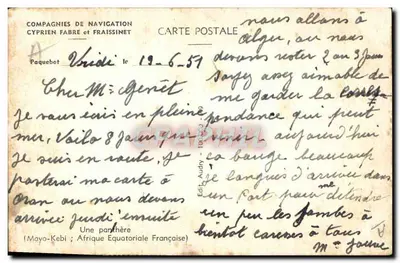 COMPAGNIES DE NAVIGATION
CYPRIEN FABRE et FRAISSINET
CARTE POSTALE
Paquebot Voidi le 19-6-51
Cher Mr Genêt
je vous écris en pleine
mer, Voila 8 Jour que
je suis en route, je
posterai ma carte à
Oran ou nous devons
arrivée jeudi ensuite
Une panthère
(Mayo-Kebi ; Afrique Equatoriale Française)
nous allons à
Alger, ou nous
devons rester 2 ou 3 Jours
Soyez assez aimable de
me garder la corres
pondance qui peut
venir. aujourd'hui
ça bouge beaucoup
je languis d'arrivée dans
un Port pour me détendre
un peu les jambes à
bientot caresses à tous
Me